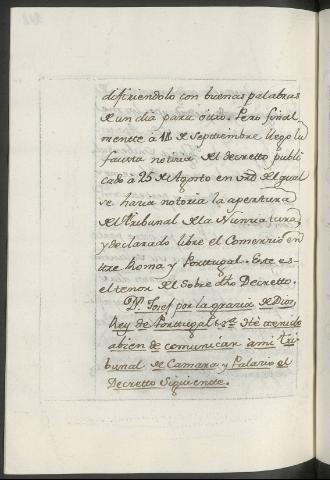 difiriendolo con buenas palabras
de un dia para otro. Pero final-
mente à 18 de Septiembre llego la
fausta noticia del decretto publi-
cado à 25 de Agosto en vd. del qual
se haria notoria la apertura
del Tribunal de la Nunciatura,
y declarado libre el Comercio en
tre Roma y Portugal. Este es
el tenor del sobre dho Decretto.
Dn. Josef por la gracia de Dios
Rey de Portugal &ca. He tenido
a bien de comunicar a mi Tri
bunal de Camara y Palacio el
Decretto Siguiente.